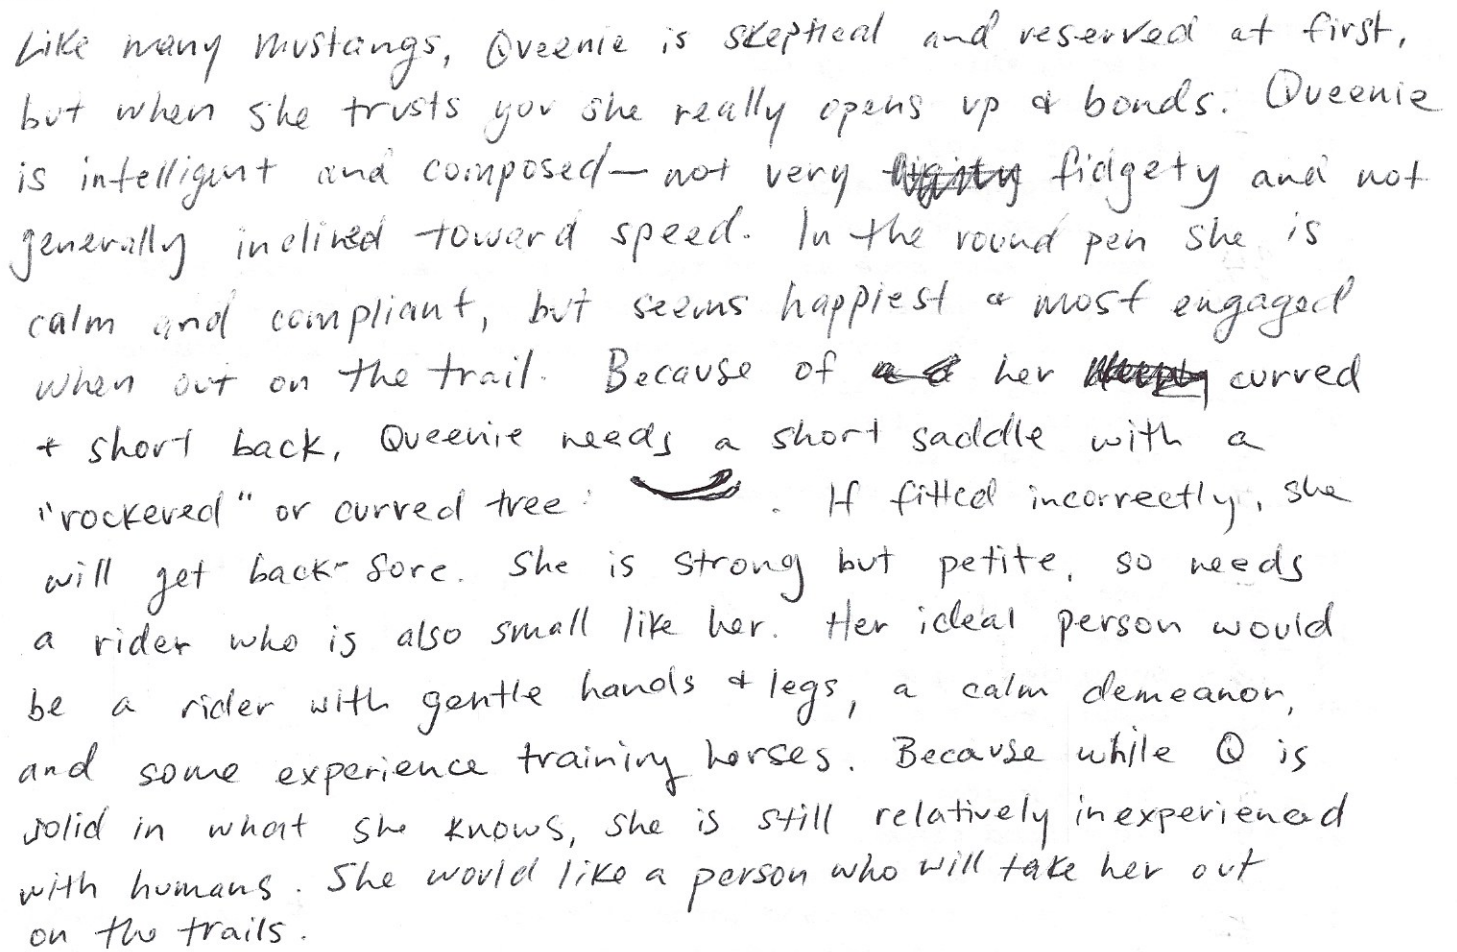 Like many mustangs, Queenie is skeptical and reserved at first,
but when she trusts you she really opens up & bonds. Queenie
is intelligent and composed—not very fidgety and not
generally inclined toward speed. In the round pen she is
calm and compliant, but seems happiest & most engaged
when out on the trail. Because of her curved
+ short back, Queenie needs a short saddle with a
"rockered" or curved tree: . If fitted incorrectly, she
will get back-sore. She is strong but petite, so needs
a rider who is also small like her. Her ideal person would
be a rider with gentle hands & legs, a calm demeanor,
and some experience training horses. Because while Q is
solid in what she knows, she is still relatively inexperienced
with humans. She would like a person who will take her out
on the trails.